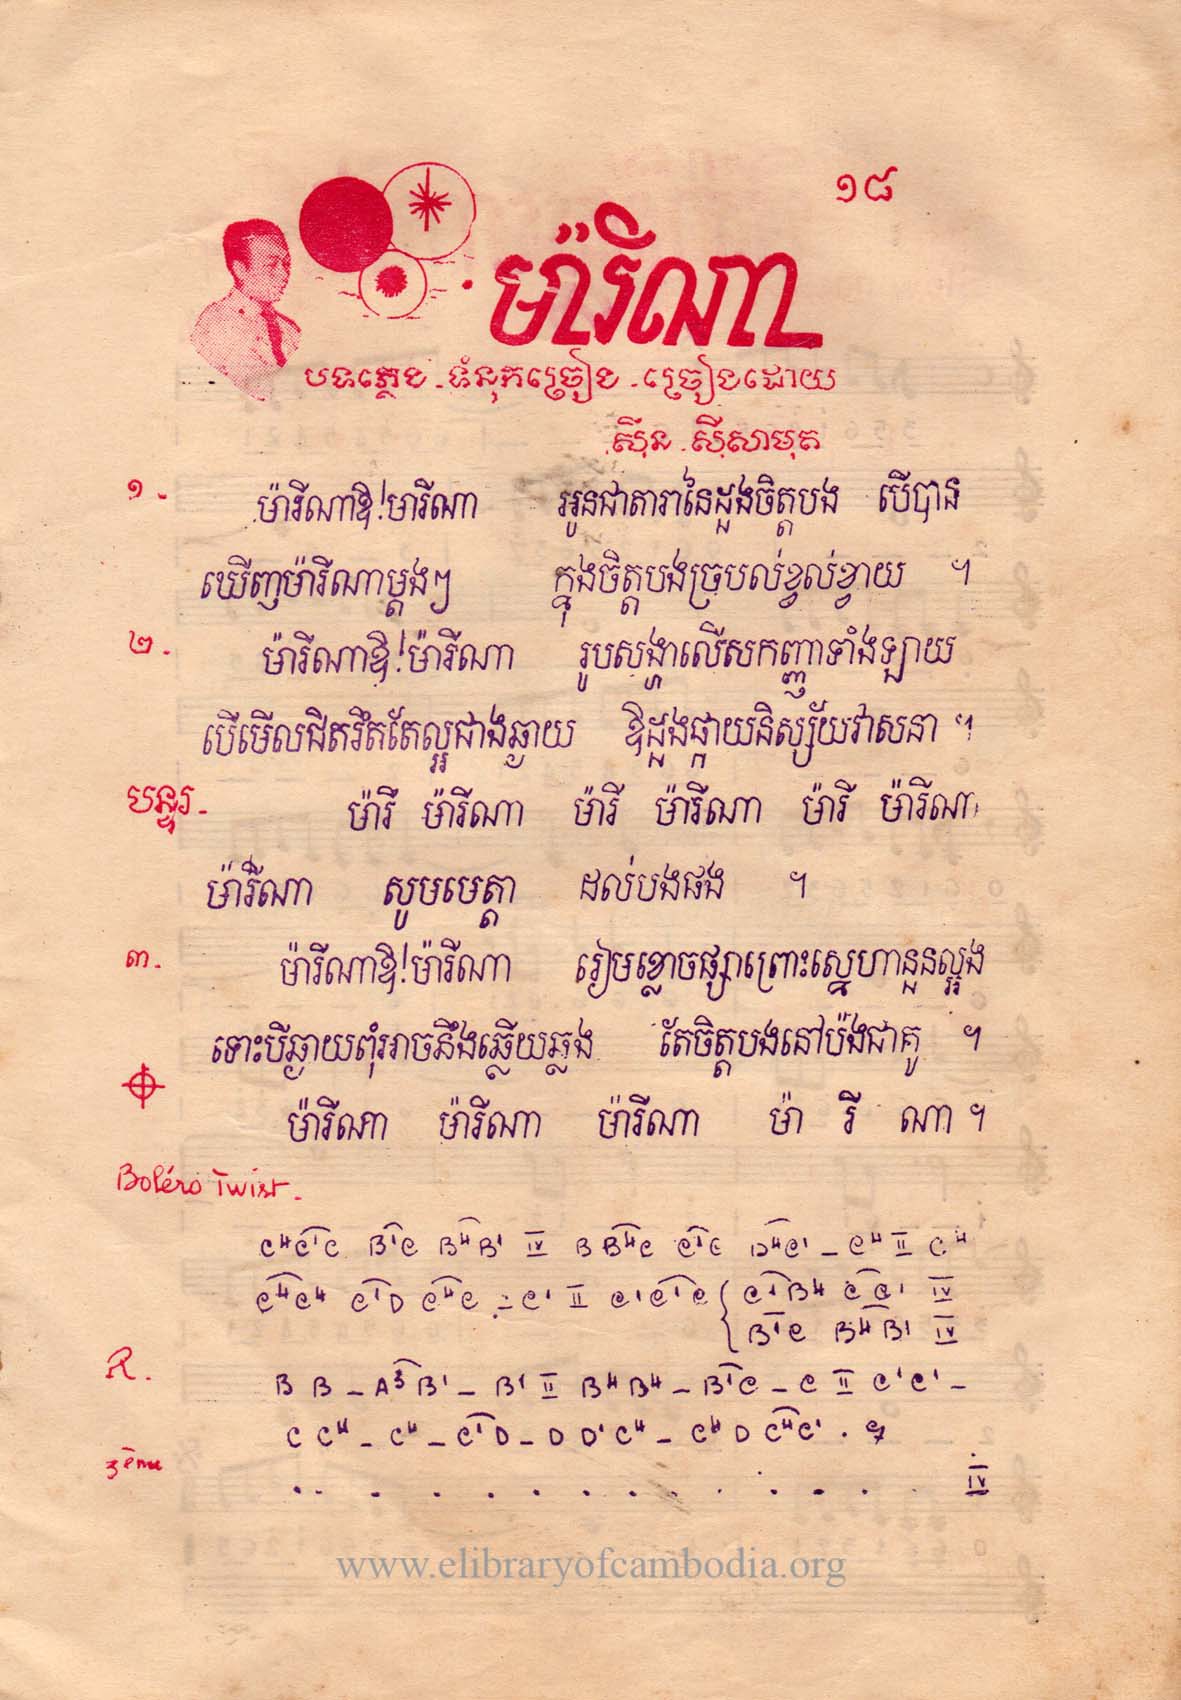 ១៨
ម៉ារីណា
បទភ្លេង - ទំនុកច្រៀង - ច្រៀងដោយ
ស៊ីន ស៊ីសាមុត
១ - ម៉ារីណាឱ!មារីណា អូនជាតារានៃដួងចិត្តបង បើបាន
ឃើញម៉ារីណាម្តងៗ ក្នុងចិត្តបងច្របល់ខ្វល់ខ្វាយ ។
២ - ម៉ារីណាឱ!ម៉ារីណា រូបសង្ហាលើសកញ្ញាទាំងឡាយ
បើមើលជិតរឹតតែល្អជាងឆ្ងាយ ឱដួងផ្កាយនិស្ស័យវាសនា ។
បន្ទរ - ម៉ារី ម៉ារីណា ម៉ារី ម៉ារីណា ម៉ារី ម៉ារីណា
ម៉ារីណា សូមមេត្តា ដល់បងផង ។
៣ - ម៉ារីណាឱ!ម៉ារីណា រៀមខ្លោចផ្សាព្រោះស្នេហានួនល្អង
ទោះបីឆ្ងាយពុំអាចនឹងឆ្លើយឆ្លង តែចិត្តបងនៅប៉ងជាគូ ។
ម៉ារីណា ម៉ារីណា ម៉ារីណា ម៉ា រី ណា ។
Boléro Twist -
C4C1C B1C B4B1 IV B B4C C1C D4C1 - C4 II C4
C4C4 C1D C4C - C1 II C1C1C { C1B4 CC1 IV
B1C B4B1 IV
R. B B - A3B1 - B1 II B4B4 - B1C - C II C1C1 -
C C4 - C4 - C1D - D D1C4 - C4 D C4C1 .
3ème . . . . . . . . . . . . . IV
www.elibraryofcambodia.org